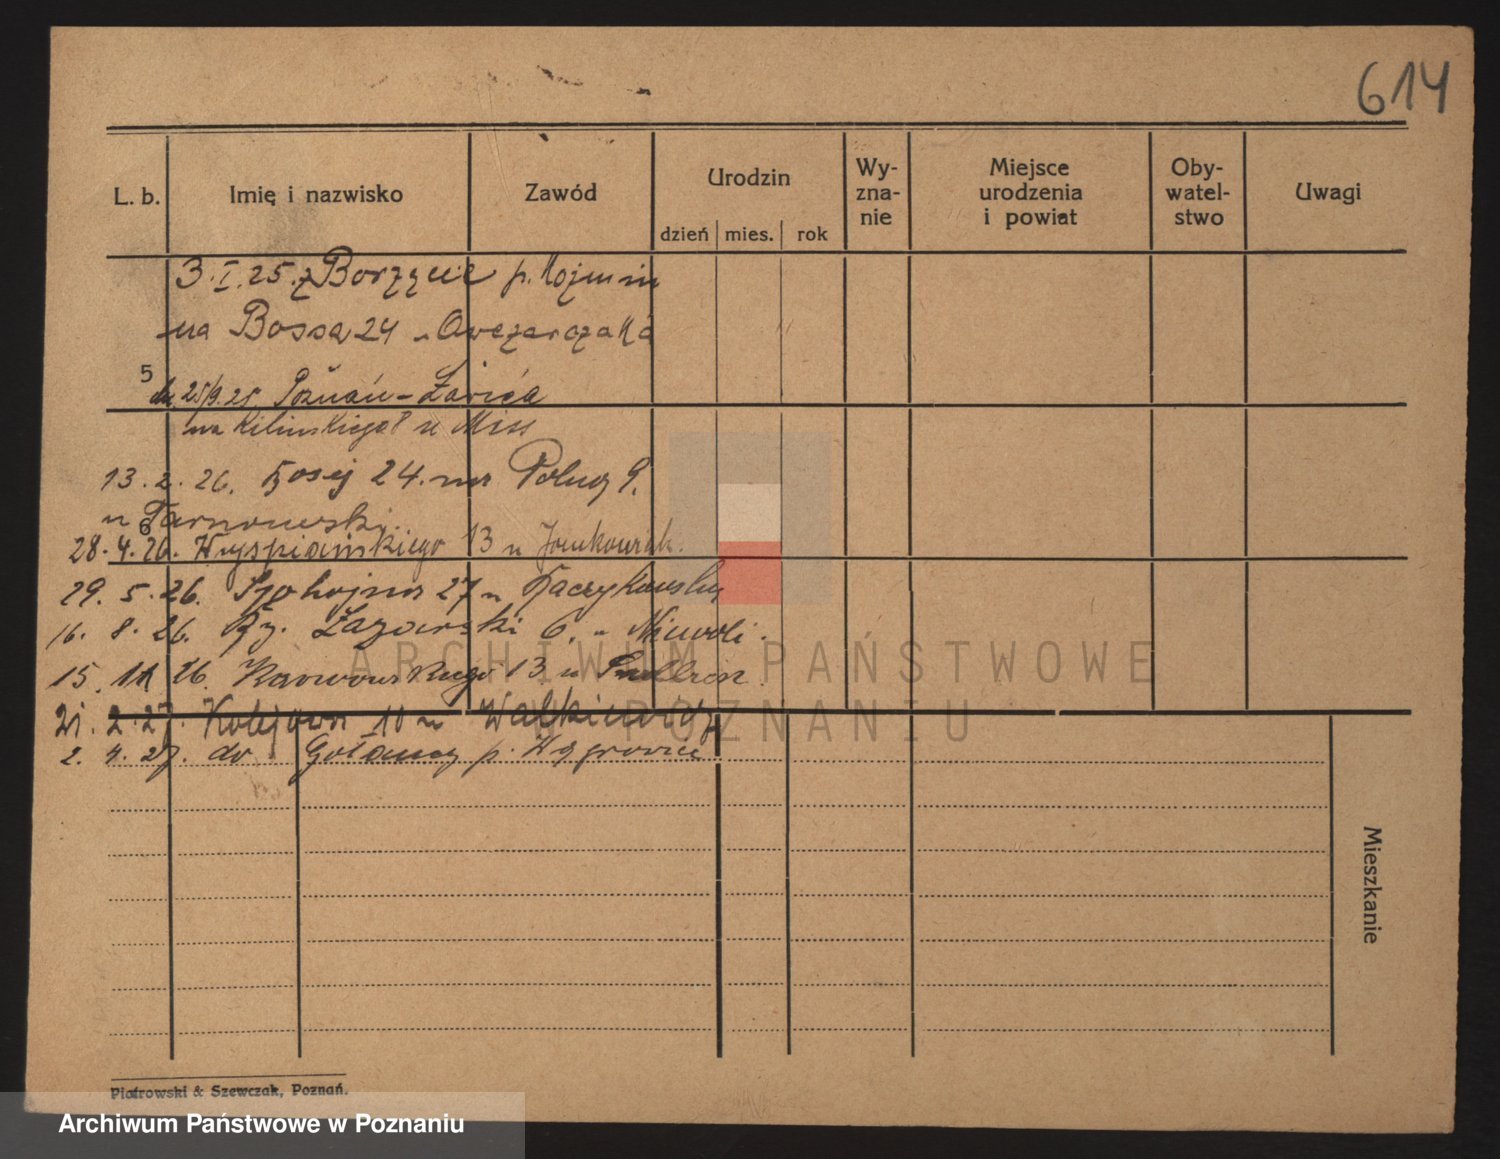 614
L. b. Imię i nazwisko Zawód Urodzin dzień mies. rok Wy-
zna-
nie Miejsce
urodzenia
i powiat Oby-
watel-
stwo Uwagi
3. I. 25. z Borzęcic p.
na Bossa 24 u Owczarczaka
5
25/9. 25 Poznań -
na Kilińskiego 8 u Miss
13. 2. 26. 24. na Polną 9.
u Tarnowski
6
28. 4. 26. Wyspiańskiego 13 u
29. 5. 26. Spokojna 27 u Kaczykowskiej
16. 8. 26. Łazarski 6. u
15. 11 26. 13 u
21. 2. 27. Kolejowa 10 u Walkiewicz
2. 4. 27. do Gołańczy p. Wągrowiec
Mieszkanie
Piotrowski & Szewczak, Poznań.
ARCHIWUM PAŃSTWOWE
W POZNANIU
Archiwum Państwowe w Poznaniu